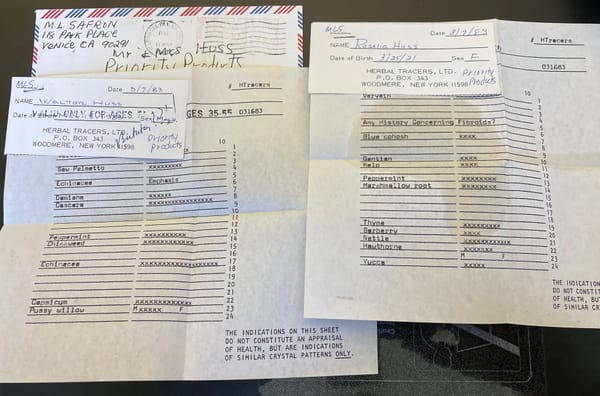 M.L. SAFRON
118 PARK PLACE
VENICE, CA 90291
Mr & Mrs Huss
Priority Products
MLS
Date 3/7/83
NAME Walton Huss
Date of Birth
VALID ONLY FOR AGES
Sex
HERBAL TRACERS, LTD.
P.O. BOX 343
WOODMERE, NEW YORK 11598
Priority
Products
# HTracers
GES 35-55 031683
10
1
2
3
4
5
Saw Palmetto xxxxxxxxx
6
Echinacea Emphasis
7
Damiana xxxxx
8
Cascara xxxxxxxxxxxxxxxx
9
10
11
12
Peppermint xxxxxxxxxxx
13
Chickweed xxxxxxxxxxx
14
15
16
Echinacea xxxxxxxxxxxxxxxxx
17
18
19
20
21
Capsicum xxxxxxxxxxxx
22
Pussy willow Mxxxxx F
23
24
THE INDICATIONS ON THIS SHEET
DO NOT CONSTITUTE AN APPRAISAL
OF HEALTH, BUT ARE INDICATIONS
OF SIMILAR CRYSTAL PATTERNS ONLY.
MLS
Date 3/7/83
NAME Rosalie Huss
Date of Birth 3/25/21 Sex F
HERBAL TRACERS, LTD.
P.O. BOX 343
WOODMERE, NEW YORK 11598
Priority
Products
# HTracers
031683
Vervain
10
1
2
3
Any History Concerning Fibroids?
4
5
Blue cohosh xxxx
6
7
Gentian xxxx
8
Kelp xxxx
9
10
Peppermint xxxxxxxx
11
Marshmallow root xxxxxxxxxxx
12
13
14
15
16
17
Thyme xxxxxxxxx
18
Barberry xxxx
19
Nettle xxxxxxxxxxx
20
Hawthorne xxxxxx
21
M F
22
23
Yucca xxxx
24
THE INDICATION
DO NOT CONSTIT
OF HEALTH, BUT
OF SIMILAR CRYS